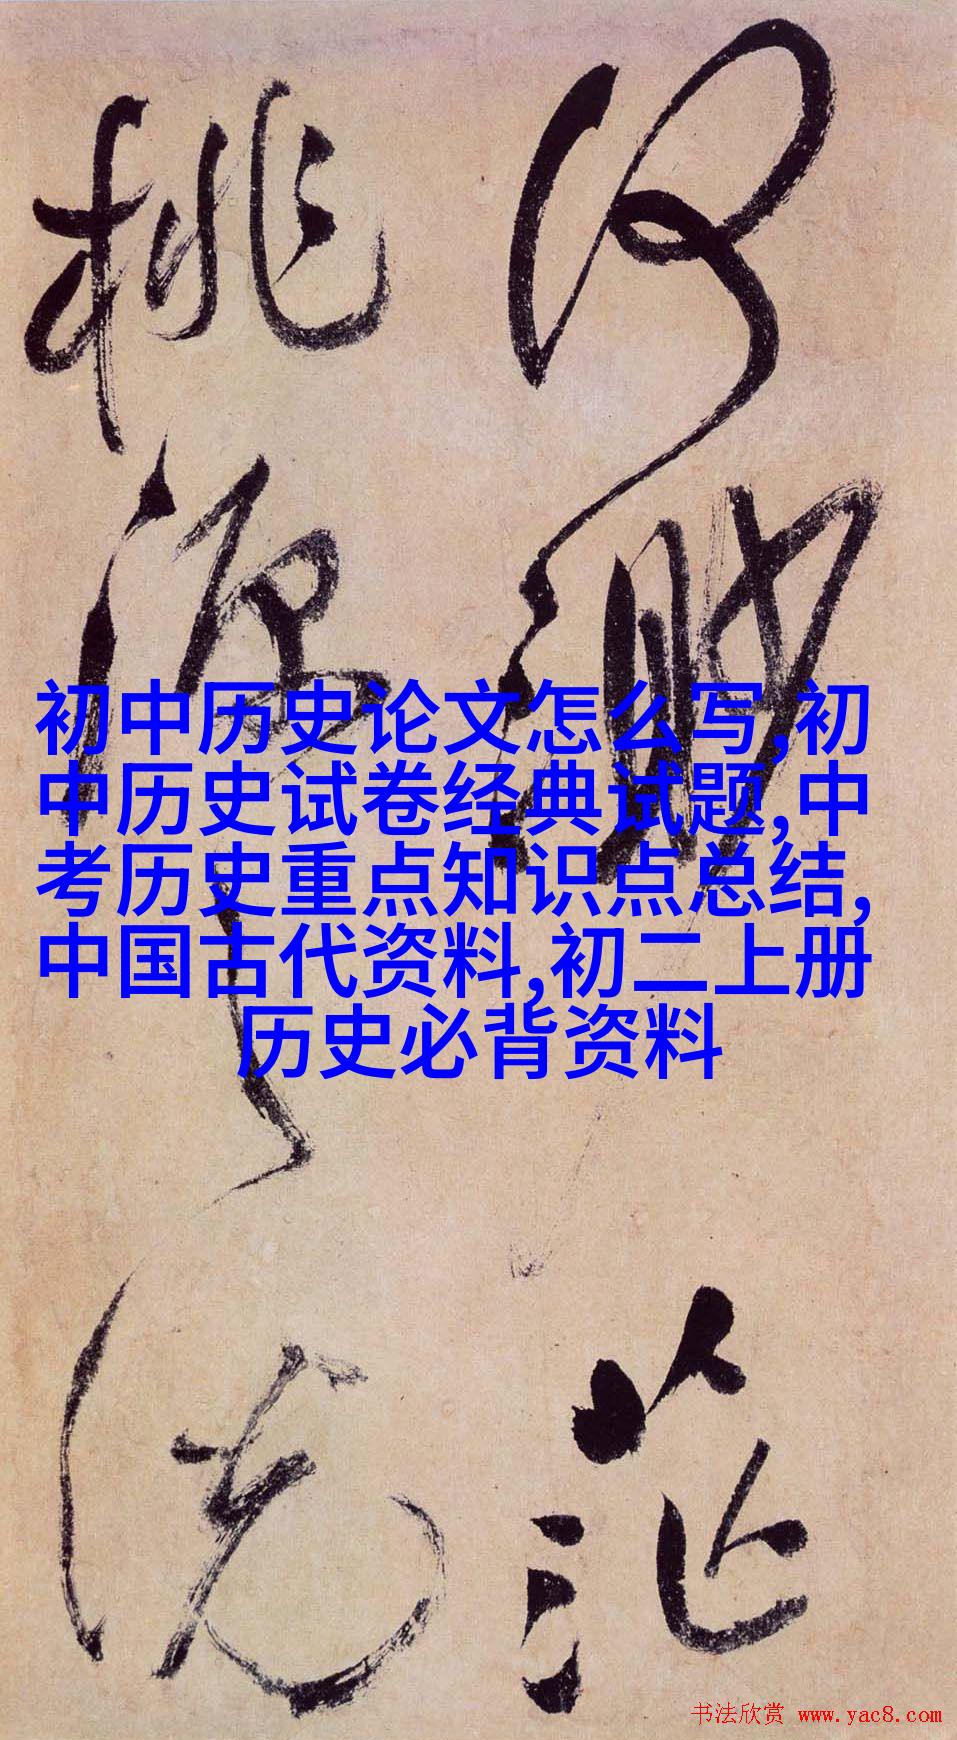 何渺茫
桃源之説
初中历史论文怎么写,初
中历史试卷经典试题,中
考历史重点知识点总结,
中国古代资料,初二上册
历史必背资料
书法欣赏 www.yac8.com